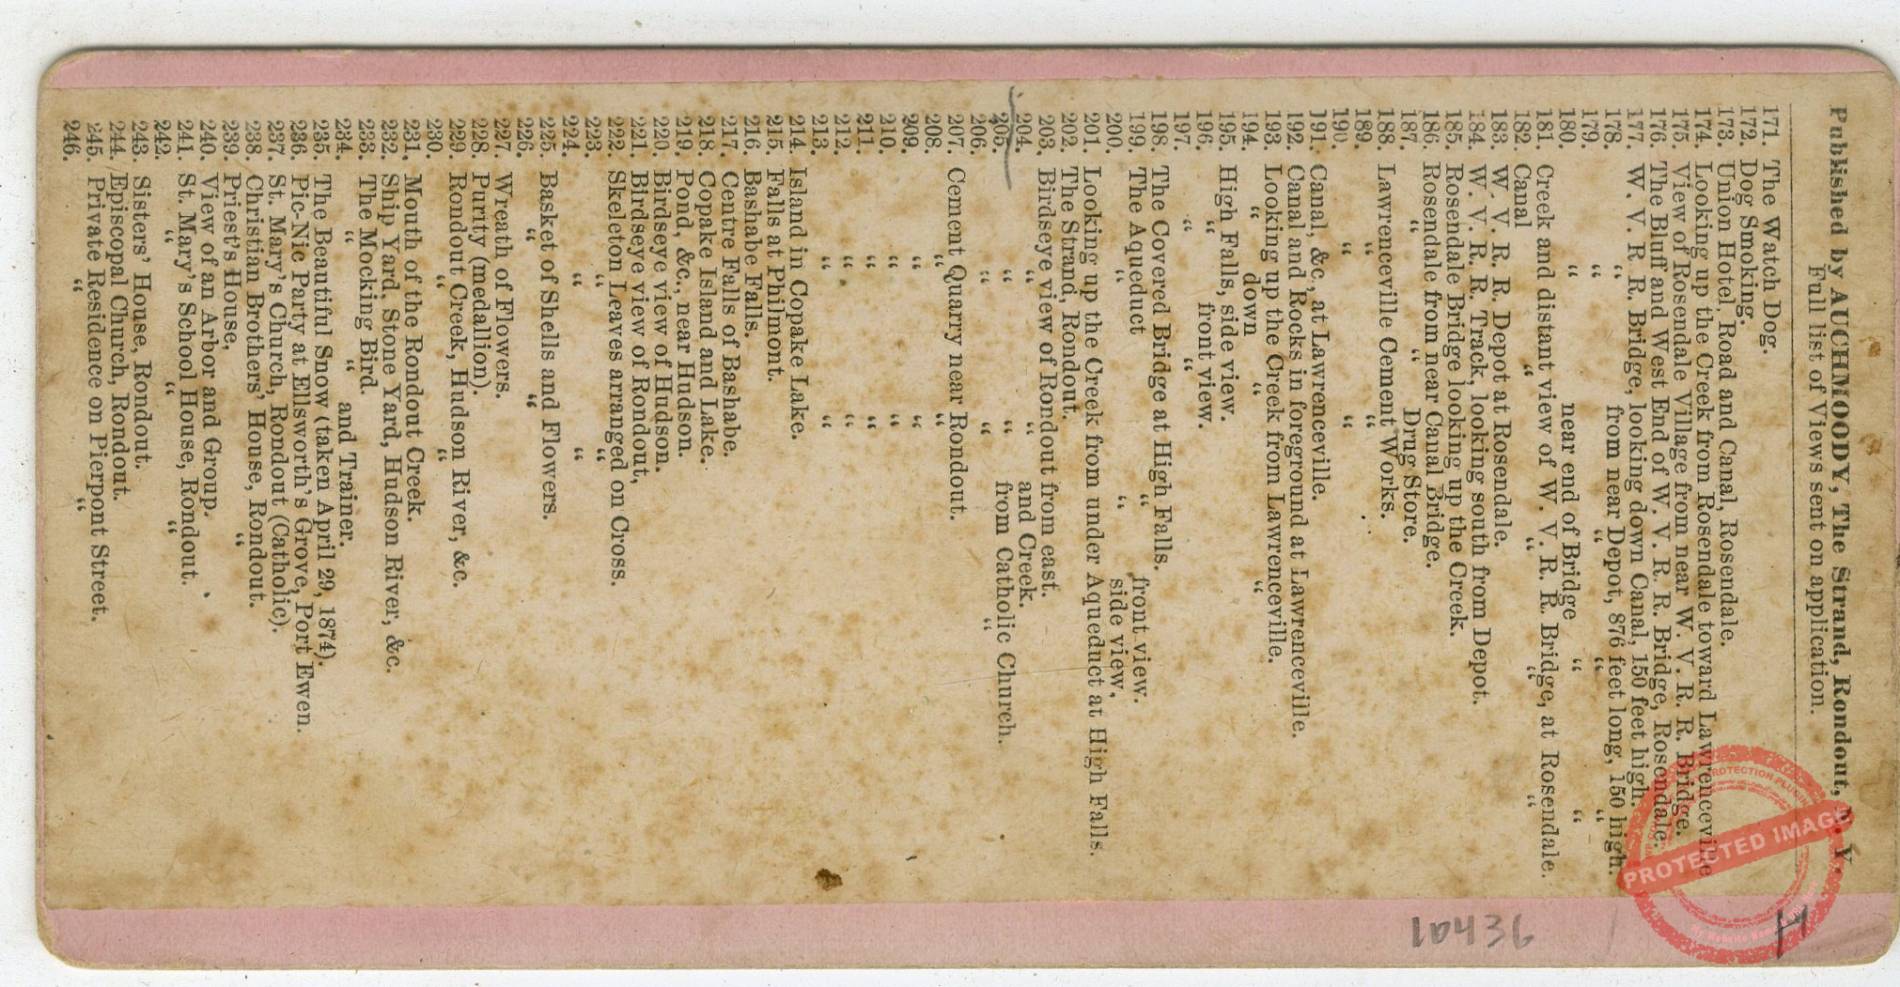 Published by AUCHMOODY, The Strand, Rondout, N. Y.
Full list of Views sent on application.
171. The Watch Dog.
172. Dog Smoking.
173. Union Hotel, Road and Canal, Rosendale.
174. Looking up the Creek from Rosendale toward Lawrenceville
175. View of Rosendale Village from near W. V. R. R. Bridge.
176. The Bluff and West End of W. V. R. R. Bridge, Rosendale.
177. W. V. R. R. Bridge, looking down Canal, 150 feet high.
178. “ from near Depot, 876 feet long, 150 high.
179. “ “ “ “
180. “ near end of Bridge “ “
181. Creek and distant view of W. V. R. R. Bridge, at Rosendale.
182. Canal “ “ “ “
183. W. V. R. R. Depot at Rosendale.
184. W. V. R. R. Track, looking south from Depot.
185. Rosendale Bridge looking up the Creek.
186. Rosendale from near Canal Bridge.
187. “ “ Drug Store.
188. Lawrenceville Cement Works.
189. “ “
190. “ “
191. Canal, &c., at Lawrenceville.
192. Canal and Rocks in foreground at Lawrenceville.
193. Looking up the Creek from Lawrenceville.
194. “ down “ “
195. High Falls, side view.
196. “ front view.
197. “ “
198. The Covered Bridge at High Falls.
199. The Aqueduct “ front view.
200. “ “ side view.
201. Looking up the Creek from under Aqueduct at High Falls.
202. The Strand, Rondout.
203. Birdseye view of Rondout from east.
204. “ “ and Creek.
205. “ “ from Catholic Church.
206. “ “ “
207. Cement Quarry near Rondout.
208. “ “
209. “ “
210. “ “
211. “ “
212. “ “
213. “ “
214. Island in Copake Lake.
215. Falls at Philmont.
216. Bashabe Falls.
217. Centre Falls of Bashabe.
218. Copake Island and Lake.
219. Pond, &c., near Hudson.
220. Birdseye view of Hudson.
221. Birdseye view of Rondout,
222. Skeleton Leaves arranged on Cross.
223. “ “
224. “ “
225. Basket of Shells and Flowers.
226. “ “
227. Wreath of Flowers.
228. Purity (medallion).
229. Rondout Creek, Hudson River, &c.
230. “ “
231. Mouth of the Rondout Creek.
232. Ship Yard, Stone Yard, Hudson River, &c.
233. The Mocking Bird.
234. “ “ and Trainer.
235. The Beautiful Snow (taken April 29, 1874).
236. Pic-Nic Party at Ellsworth's Grove, Port Ewen.
237. St. Mary's Church, Rondout (Catholic).
238. Christian Brothers' House, Rondout.
239. Priest's House, “
240. View of an Arbor and Group.
241. St. Mary's School House, Rondout.
242. “ “ “
243. Sisters' House, Rondout.
244. Episcopal Church, Rondout.
245. Private Residence on Pierpont Street.
246. “ “
10436
H
PROTECTED IMAGE